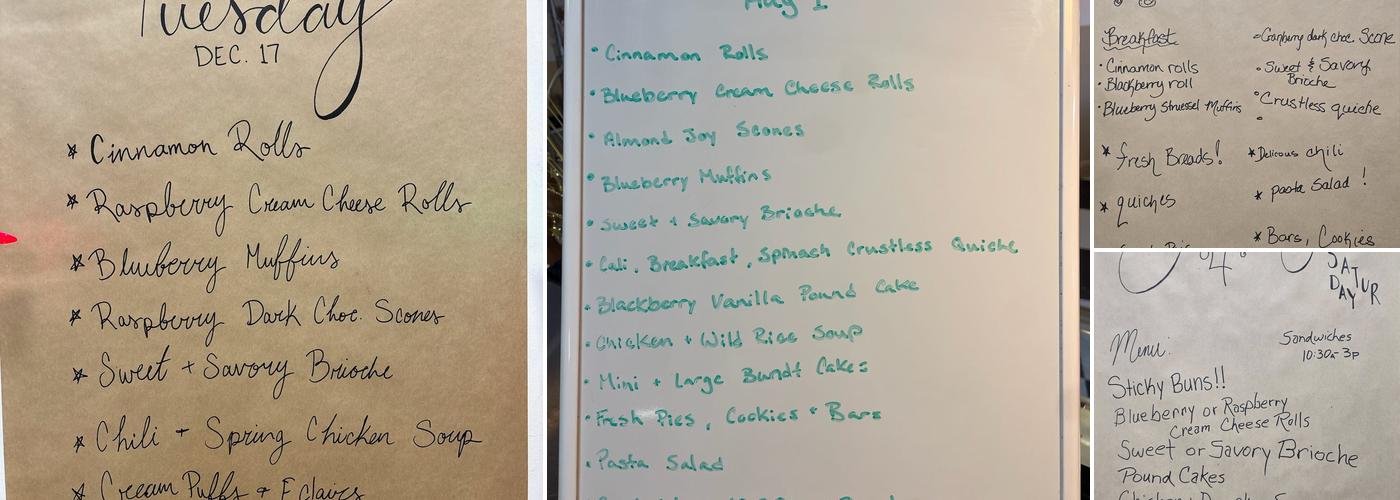 Tuesday
DEC. 17
* Cinnamon Rolls
* Raspberry Cream Cheese Rolls
* Blueberry Muffins
* Raspberry Dark Choc. Scones
* Sweet + Savory Brioche
* Chili + Spring Chicken Soup
* Cream Puffs + Eclairs
May 1
• Cinnamon Rolls
• Blueberry Cream Cheese Rolls
• Almond Joy Scones
• Blueberry Muffins
• Sweet + Savory Brioche
• Cali, Breakfast, Spinach Crustless Quiche
• Blackberry Vanilla Pound Cake
• Chicken + Wild Rice Soup
• Mini + Large Bundt Cakes
• Fresh Pies, Cookies + Bars
• Pasta Salad
Breakfast
• Cinnamon rolls
• Blackberry roll
• Blueberry Struessel Muffins
* fresh Breads!
* quiches
• Cranberry dark choc. Scone
• Sweet & Savory
Brioche
• Crustless quiche
* Delicous chili
* pasta Salad!
* Bars, Cookies
SATUR
DAY
Menu:
Sandwiches
10:30a-3p
Sticky Buns!!
Blueberry or Raspberry
Cream Cheese Rolls
Sweet or Savory Brioche
Pound Cakes